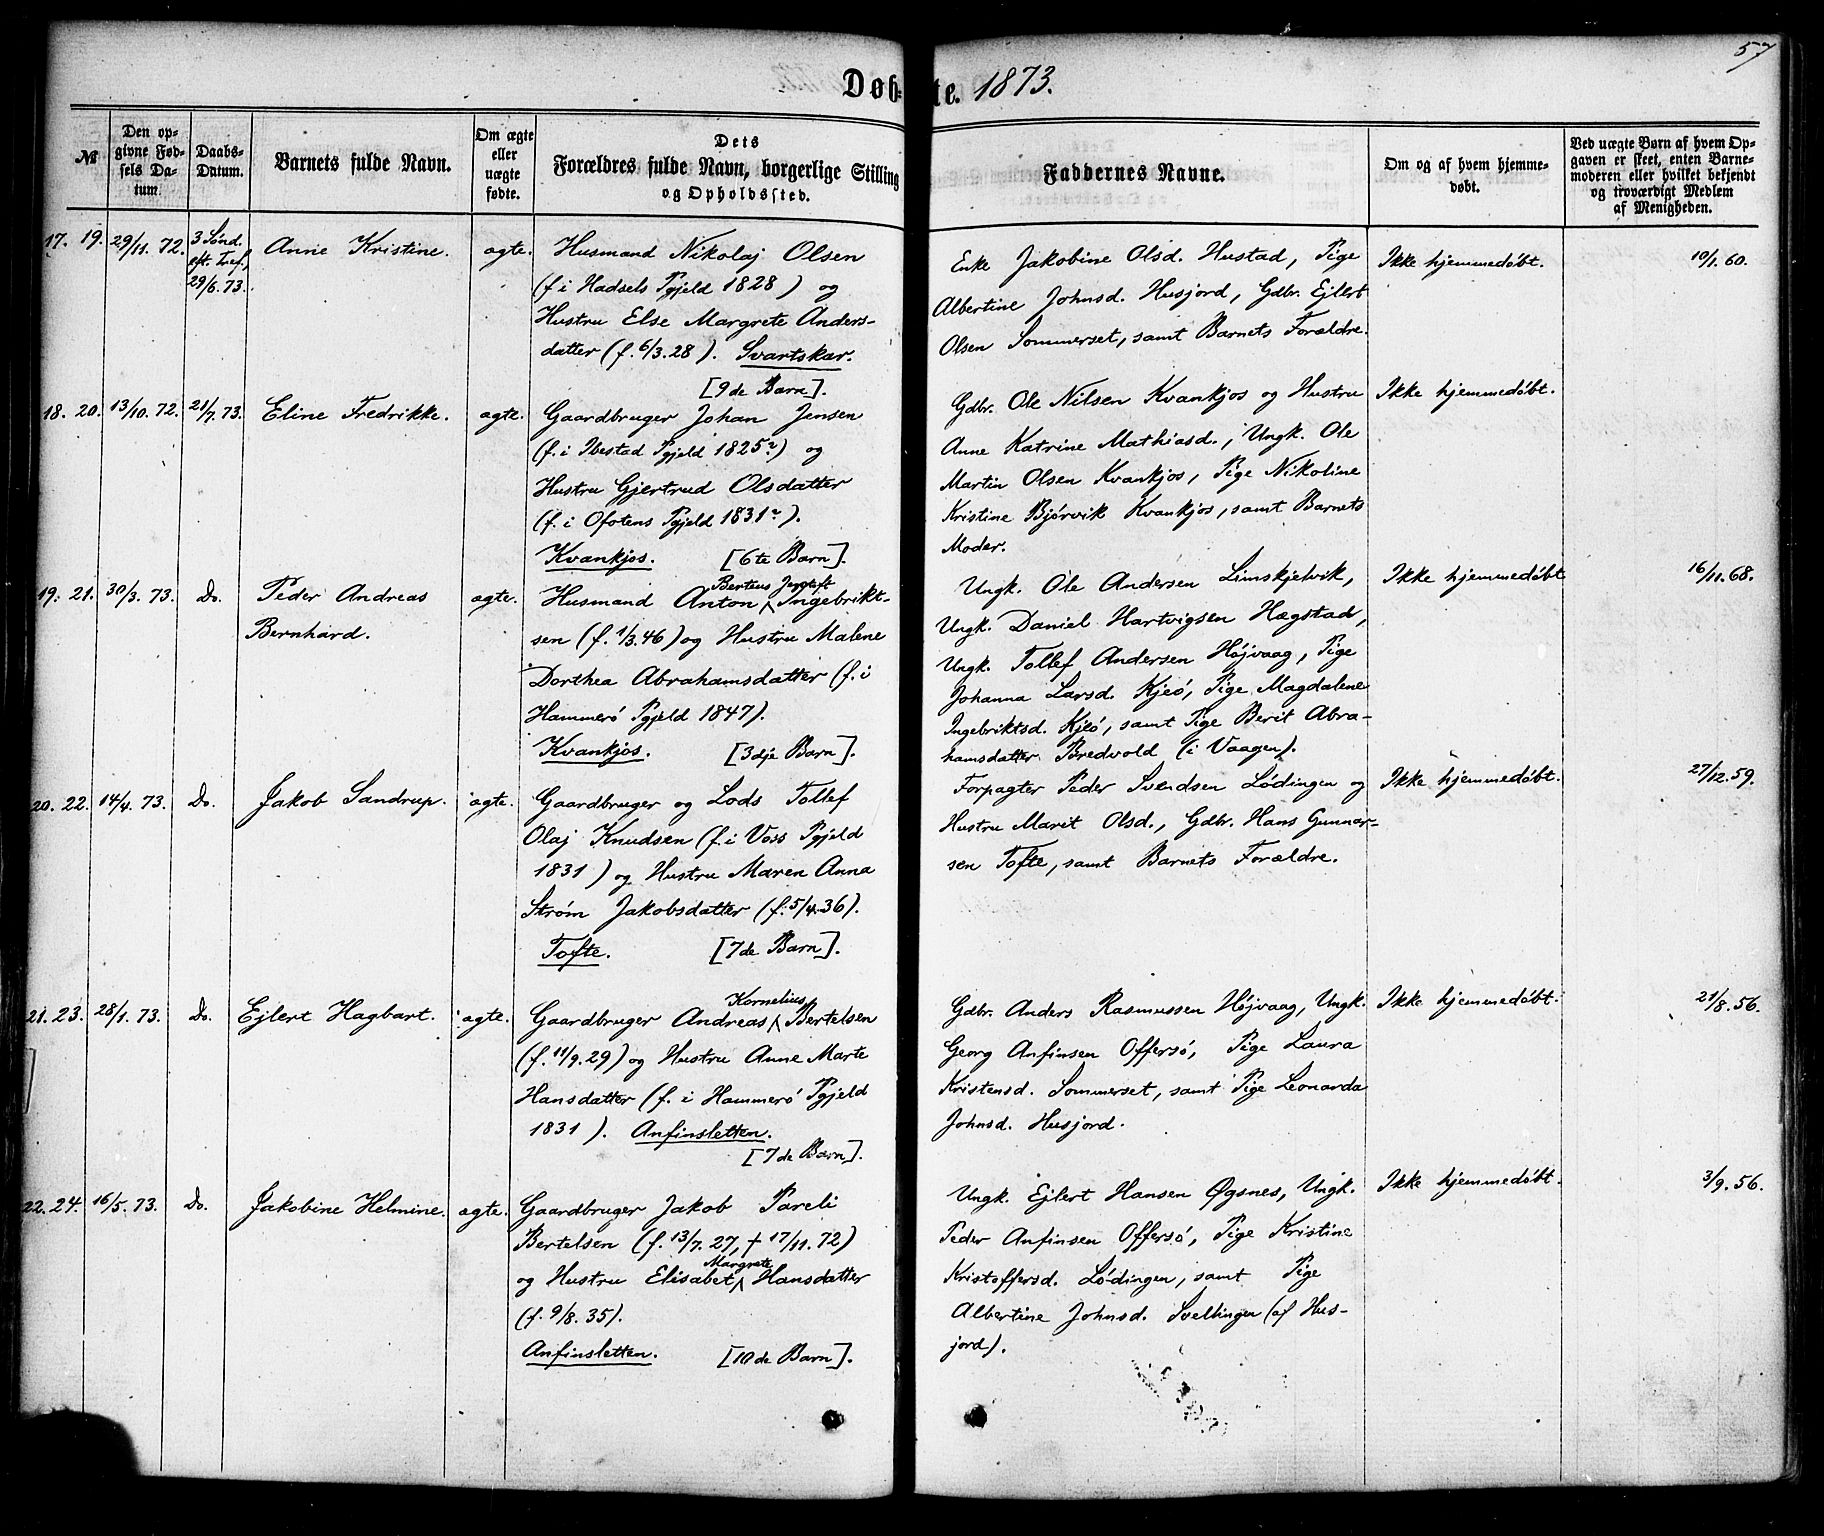 57
Døb- te. 1873.
№
Den op-
givne Fød-
sels Da-
tum.
Daabs-
Datum.
Barnets fulde Navn.
Om ægte
eller
uægte
fødte.
Dets
Forældres fulde Navn, borgerlige Stilling
og Opholdssted.
Faddernes Navne.
Om og af hvem hjemme-
døbt.
Ved uægte Børn af hvem Op-
gaven er skeet, enten Barne-
moderen eller hvilket bekjendt
og troværdigt Medlem
af Menigheden.
17. 19. 29/11. 72. 3 Sønd.
eft. Tref.
29/6. 73.
Anne Kristine.
ægte.
Husmand Nikolaj Olsen
(f. i Hadsels Pgjeld 1828) og
Hustru Else Margrete Anders-
datter (f. 6/3. 28). Svartskar.
[9de Barn].
Enke Jakobine Olsd. Hustad, Pige
Albertine Johnsd. Husjord, Gdbr. Ejlert
Olsen Sommerset, samt Barnets Forældre.
Ikke hjemmedøbt.
10/1. 60.
18. 20. 13/10. 72. 21/7. 73. Eline Fredrikke.
ægte.
Gaardbruger Johan Jensen
(f. i Ibestad Pgjeld 1825?) og
Hustru Gjertrud Olsdatter
(f. i Ofotens Pgjeld 1831?).
Kvankjos. [6te Barn].
Gdbr. Ole Nilsen Kvankjos og Hustru
Anne Katrine Mathiasd., Ungk. Ole
Martin Olsen Kvankjos, Pige Nikoline
Kristine Bjørvik Kvankjos, samt Barnets
Moder.
Ikke hjemmedøbt.
19. 21. 30/3. 73. Do. Peder Andreas
Bernhard.
ægte.
Husmand Anton ^ Ingebrikt-
sen (f. 1/3. 46) og Hustru Malene
Dorthea Abrahamsdatter (f. i
Hammerø Pgjeld 1847).
Kvankjos. [3dje Barn].
Ungk. Ole Andersen Limskjelvik,
Ungk. Daniel Hartvigsen Hægstad,
Ungk. Tollef Andersen Højvaag, Pige
Johanna Larsd. Kjeø, Pige Magdalene
Ingebriktsd. Kjeø, samt Pige Berit Abra-
hamsdatter Bredvold (i Vaagen).
Ikke hjemmedøbt
16/11. 68.
20. 22. 14/4. 73. Do. Jakob Sandrup.
ægte.
Gaardbruger og Lods Tollef
Olaj Knudsen (f. i Voss Pgjeld
1831) og Hustru Maren Anna
Strøm Jakobsdatter (f. 5/4. 36).
Tofte. [7de Barn].
Forpagter Peder Svendsen Lødingen og
Hustru Marit Olsd., Gdbr. Hans Gunnar-
sen Tofte, samt Barnets Forældre.
Ikke hjemmedøbt.
27/12. 59.
21. 23. 28/1. 73. Do. Ejlert Hagbart.
ægte.
Kornelius
Gaardbruger Andreas ^ Bertelsen
(f. 11/9. 29) og Hustru Anne Marte
Hansdatter (f. i Hammerø Pgjeld
1831). Anfinsletten.
[7de Barn].
Gdbr. Anders Rasmussen Højvaag, Ungk.
Georg Anfinsen Offersø, Pige Laura
Kristensd. Sommerset, samt Pige Leonarda
Johnsd. Husjord.
Ikke hjemmedøbt.
21/8. 56.
22. 24. 16/5. 73. Do. Jakobine Helmine.
ægte.
Gaardbruger Jakob Pareli
Bertelsen (f. 13/7. 27, † 17/11. 72)
Margrete
og Hustru Elisabet ^ Hansdatter
(f. 9/8. 35).
Anfinsletten. [10de Barn].
Ungk. Ejlert Hansen Øgsnes, Ungk.
Peder Anfinsen Offersø, Pige Kristine
Kristoffersd. Lødingen, samt Pige
Albertine Johnsd. Svellingen (af Hus-
jord).
Ikke hjemmedøbt.
3/9. 56.